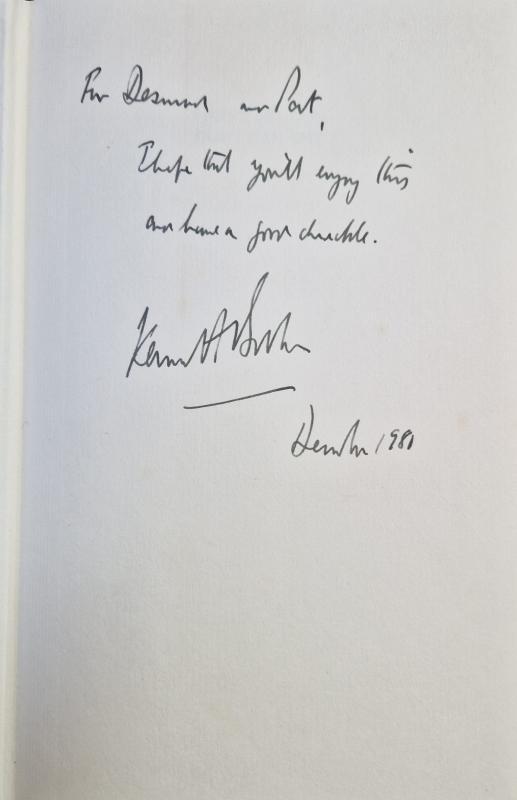 For Desmond and Pat,
I hope that you'll enjoy this
and have a good chuckle.
Kenneth
December 1980